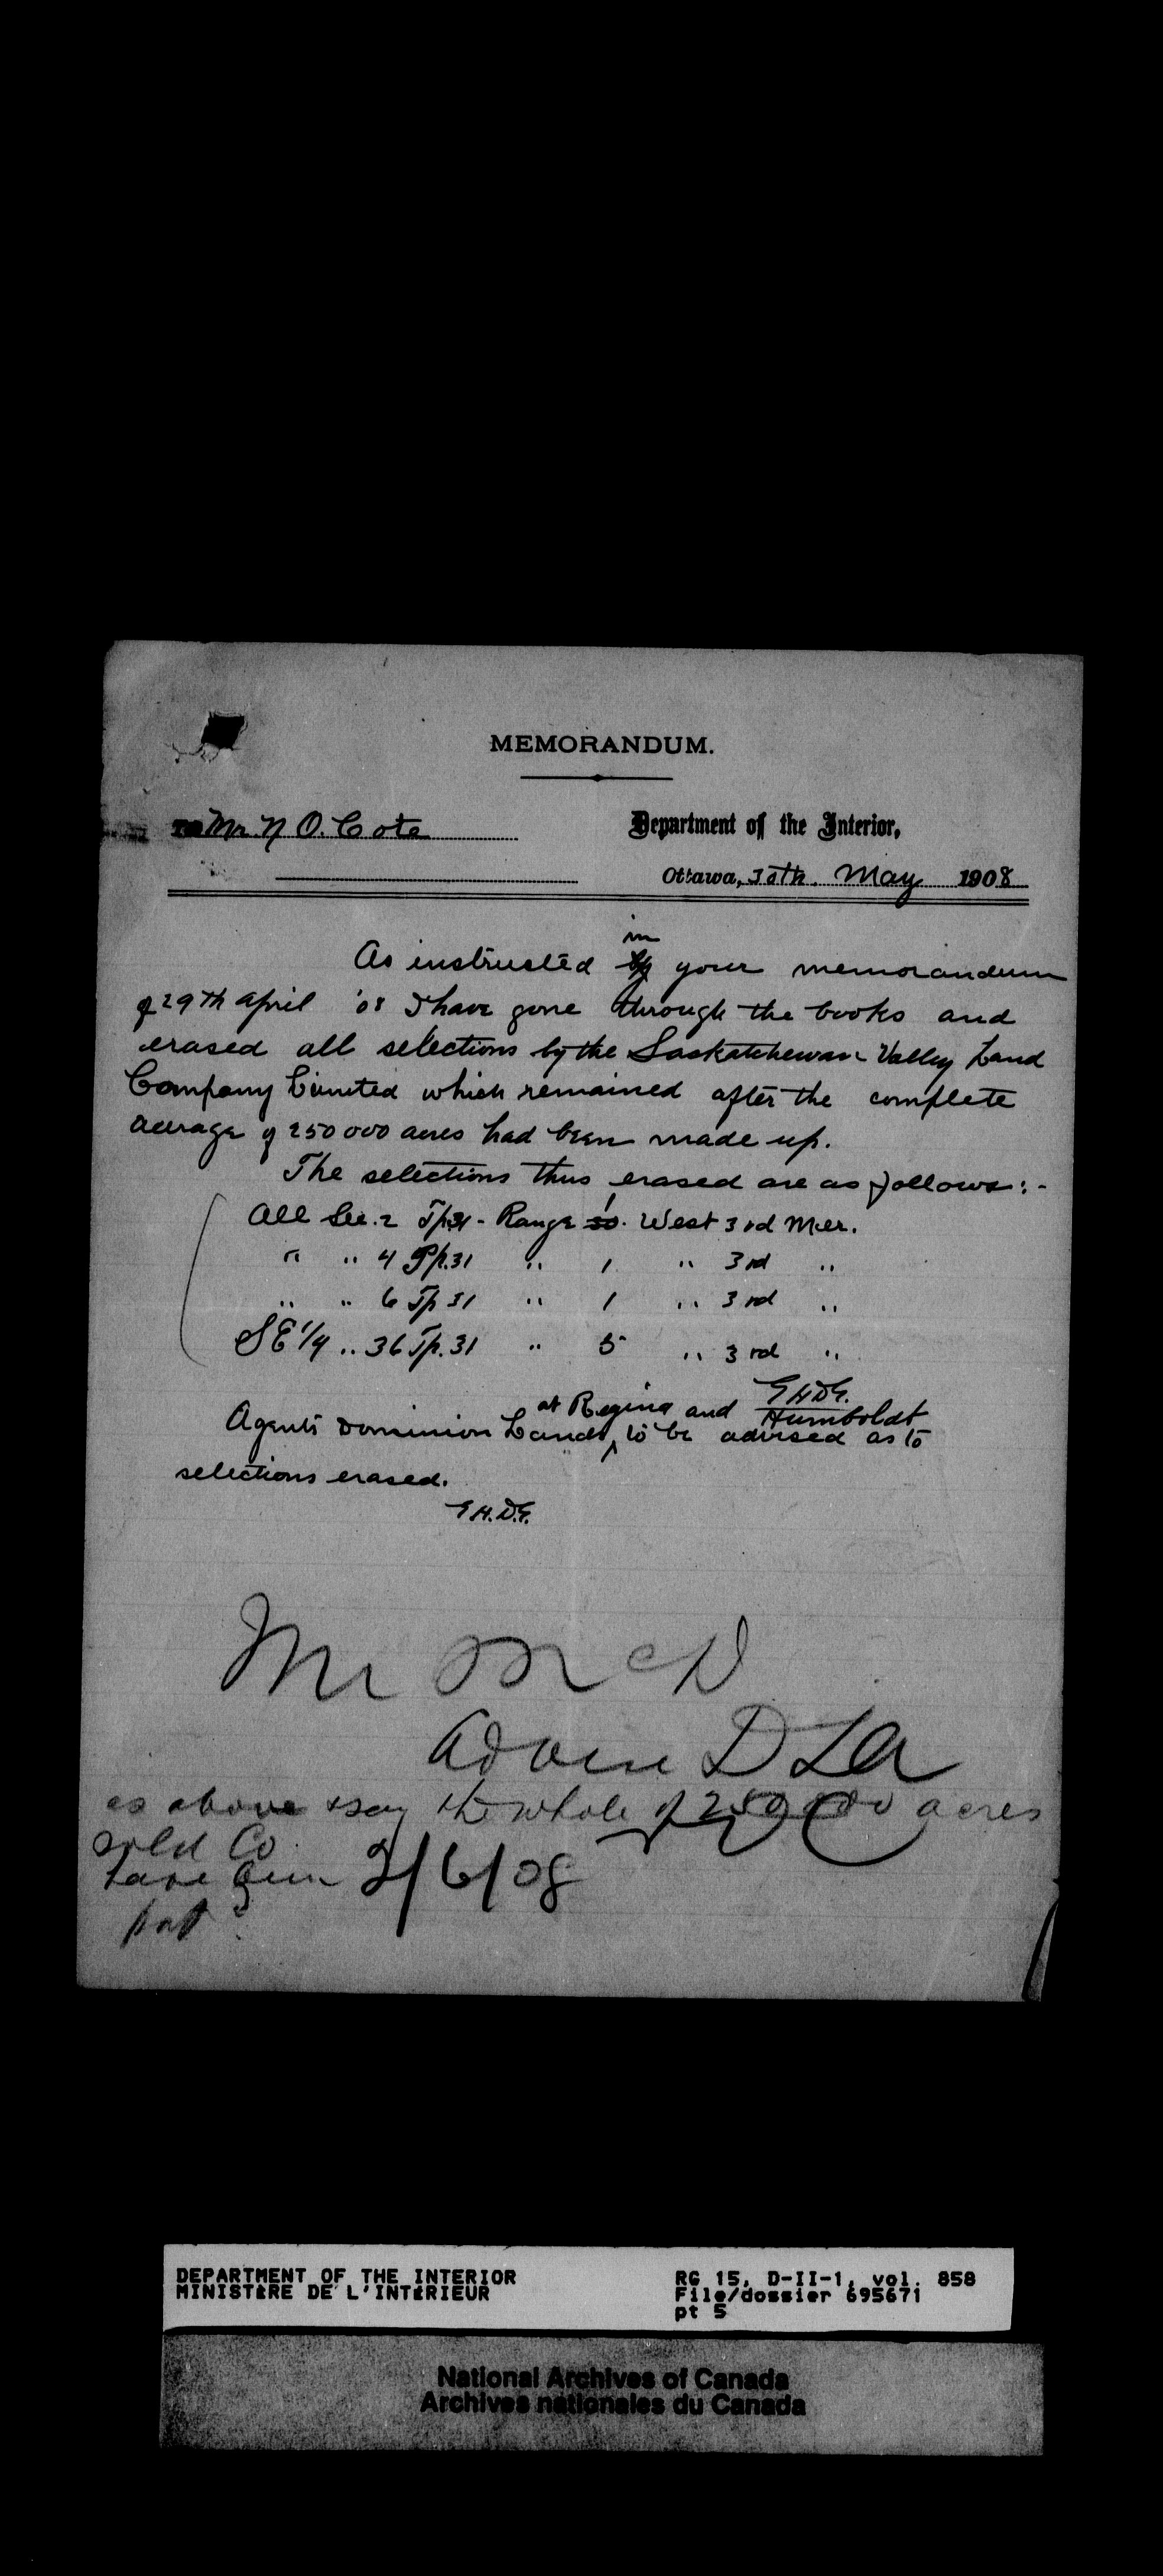 MEMORANDUM.
To Mr. N O. Cote
Department of the Interior,
Ottawa, 30th. May 1908
in
As instructed by your memorandum
of 29th April '08 I have gone through the books and
erased all selections by the Saskatchewan Valley Land
Company Limited which remained after the complete
acreage of 250000 acres had been made up.
The selections thus erased are as follows:-
All Sec. 2 Tp. 31 - Range 1 West 3rd Mer.
" " 4 Tp. 31 " 1 " 3rd "
" " 6 Tp 31 " 1 " 3rd "
SE 1/4 " 36 Tp. 31 " 5 " 3rd "
G H D G.
at Regina and Humboldt
Agents Dominion Lands, to be advised as to
selections erased.
G H. D. G.
Mr McD
Advise D L A
as above & say the whole of 250000 acres
sold Co
have been 2/6/08
pat
DEPARTMENT OF THE INTERIOR
MINISTÈRE DE L'INTÉRIEUR
RG 15, D-II-1, vol. 858
File/dossier 695671
pt 5
National Archives of Canada
Archives nationales du Canada